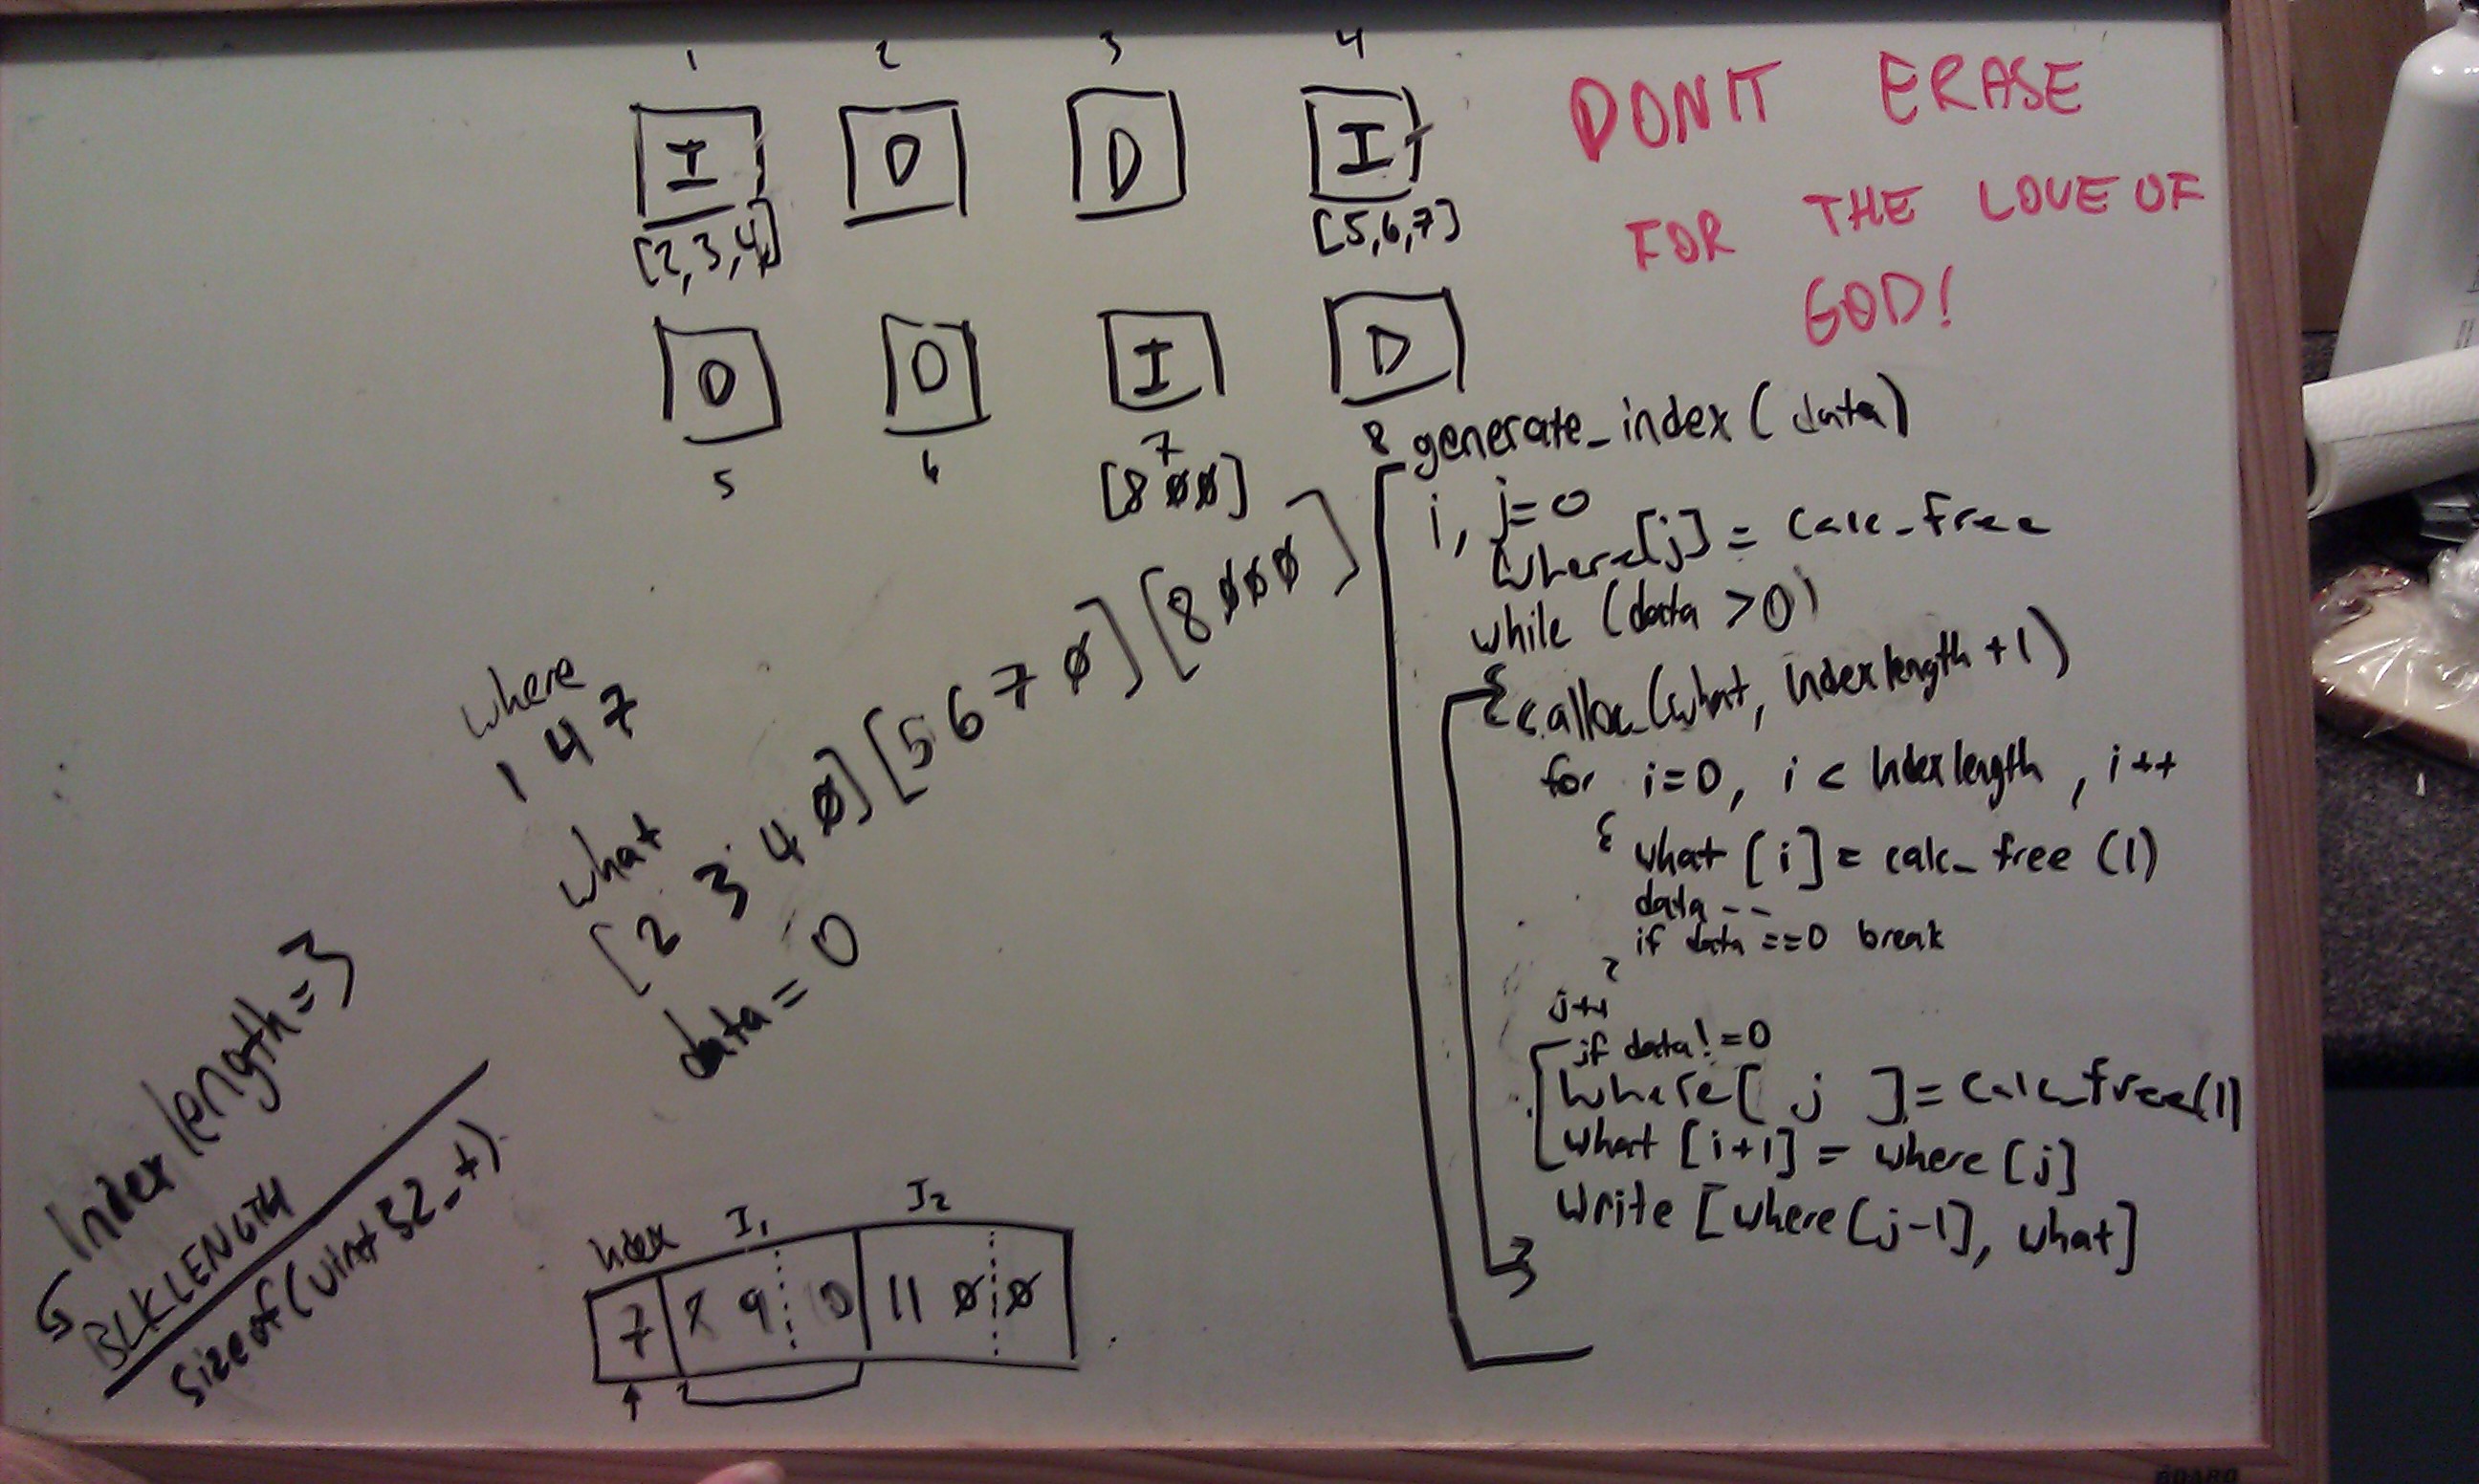 1 2 3 4
I D D I
[2,3,4] [5,6,7]
D D I D
5 6 7 8
[8 ø ø]
DON'T ERASE
FOR THE LOVE OF
GOD!
where
1 4 7
what
[2 3 4 ø] [5 6 7 ø] [8 ø ø ø]
data = 0
Index length = 3
BLKLENGTH
sizeof(uint32_t)
Index I1 I2
7 8 9 10 11 ø ø
generate_index (data)
i, j=0
where[j] = calc_free
while (data >0)
{calloc(what, Indexlength +1)
for i=0, i < Indexlength, i++
{ what [i] = calc_free (1)
data --
if data ==0 break
}
j++
if data != 0
where[ j ] = calc_free(1)
what [i+1] = where [j]
write [where[j-1], what]
}
BOARD